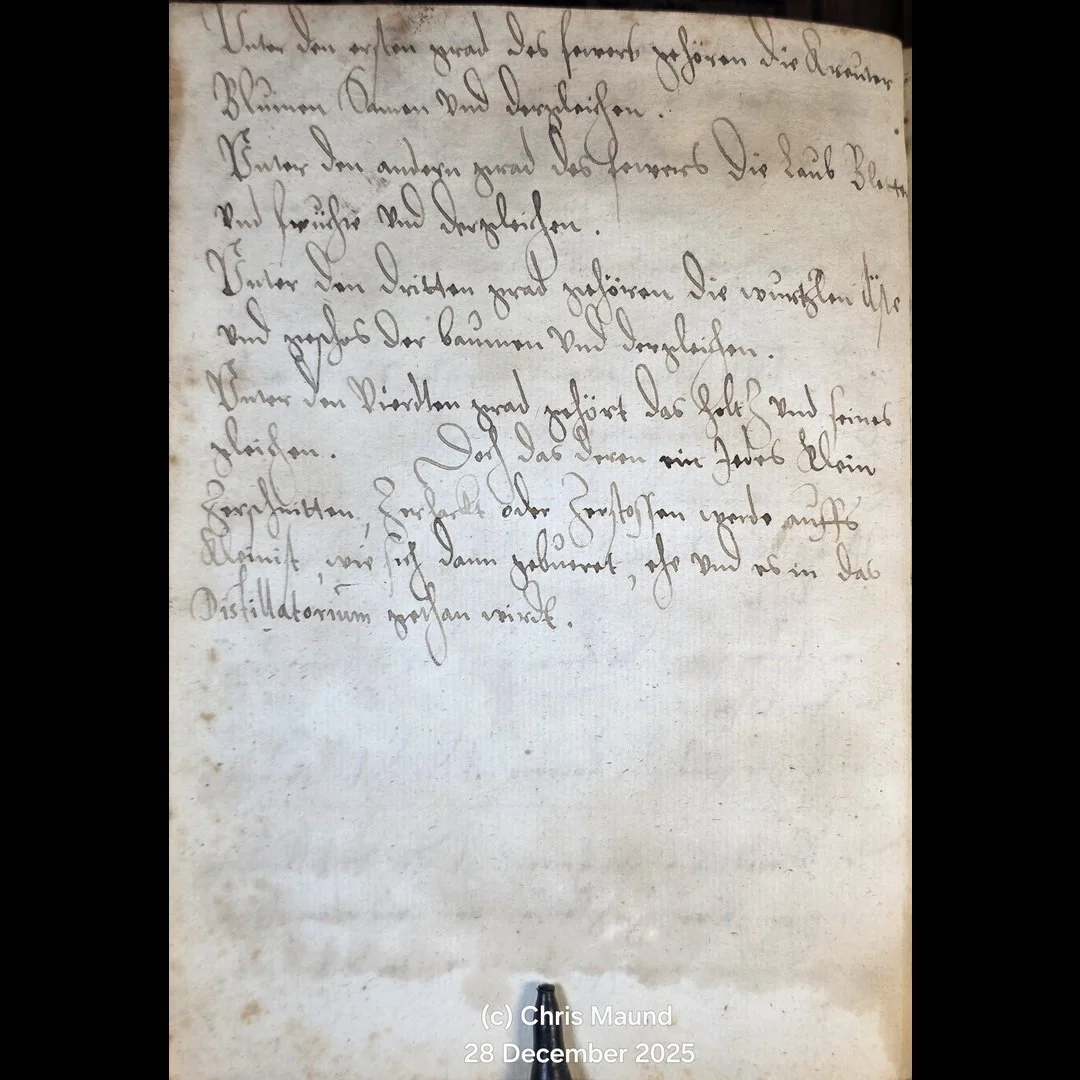 Vnter den ersten grad des fewers gehören die Kreuter
Blumen Samen vnd dergleichen.
Vnter den andern grad des fewers die Laub Bletter
vnd früchte vnd dergleichen.
Vnter den dritten grad gehören die wurtzlen Äste
vnd geschos der baumen vnd dergleichen.
Vnter den Vierdten grad gehört das holtz vnd seines
gleichen. Doch das deren ein Jedes Klein
Zerschnitten, Zerhackt oder Zerstossen werde auffs
Kleinist, wie sich dann gebueret, ehe vnd es in das
Distillatorium gethan wirdt.
(c) Chris Maund
28 December 2025